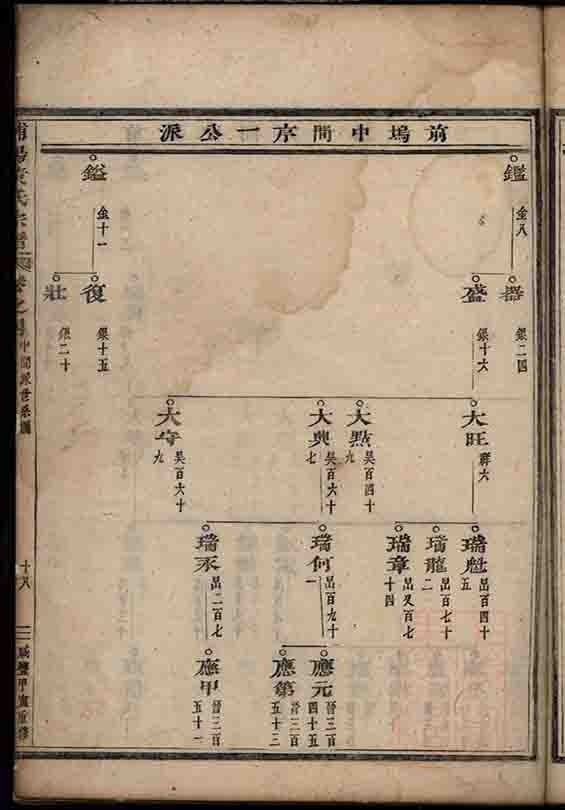 前塢中間序一公派
鑑
金八
鎰
金十一
器
銀二四
盛
銀十六
復
銀十五
壯
銀二十
大旺
群六
大點
吳百四十九
大興
吳百六十七
大守
吳百六十九
瑞魁
呂百四十五
瑞龍
呂百七十二
瑞章
呂又百七十四
瑞何
呂百九十一
瑞承
呂二百七
應元
晉三百四十五
應第
晉三百五十三
應甲
晉三百五十一
氏宗譜
卷之
中間派世系圖
十八
咸豐甲寅重修